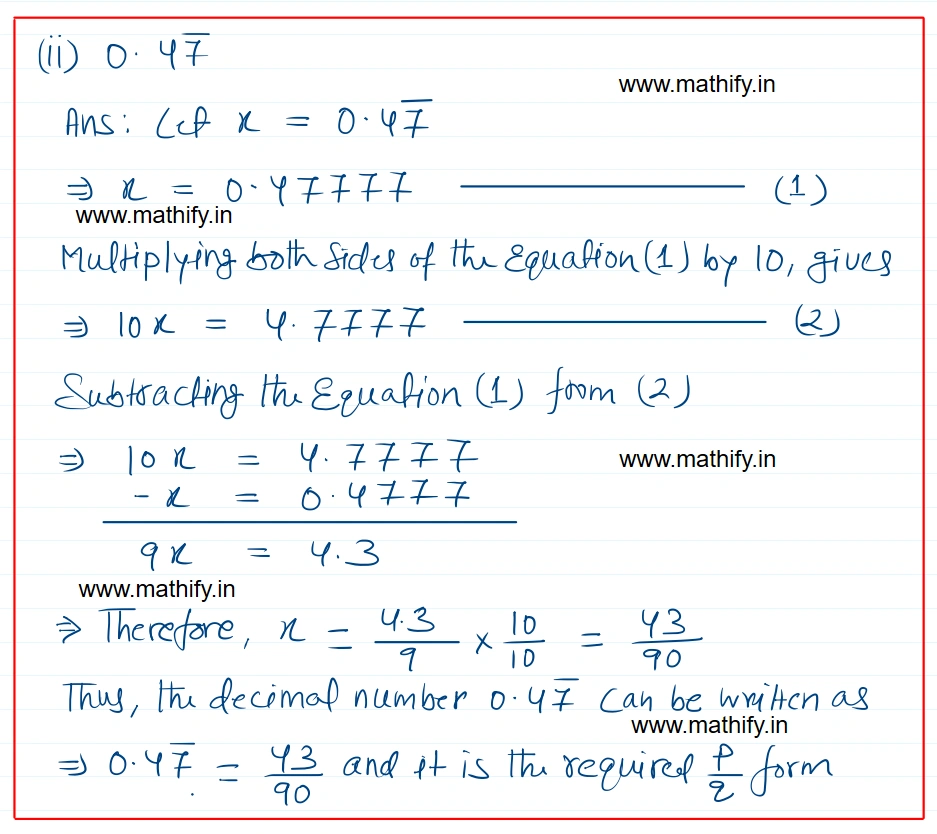 (ii) 0.47̅
www.mathify.in
Ans: Let x = 0.47̅
⇒ x = 0.47777 ———— (1)
www.mathify.in
Multiplying both sides of the Equation (1) by 10, gives
⇒ 10x = 4.7777 ———— (2)
Subtracting the Equation (1) from (2)
⇒ 10x = 4.7777
www.mathify.in
-x = 0.4777
9x = 4.3
www.mathify.in
⇒ Therefore, x = 4.3/9 × 10/10 = 43/90
Thus, the decimal number 0.47̅ can be written as
www.mathify.in
⇒ 0.47̅ = 43/90 and it is the required p/q form